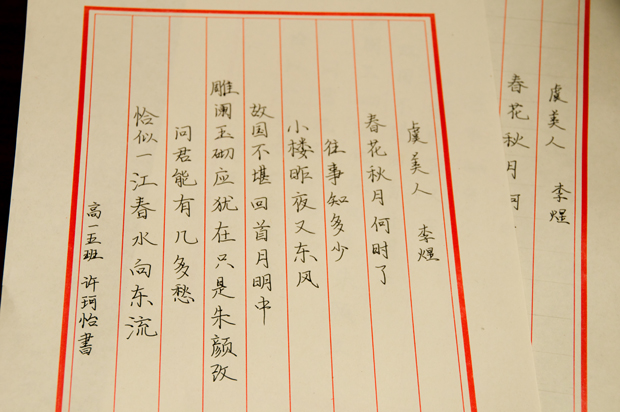 虞美人 李煜
春花秋月何时了
往事知多少
小楼昨夜又东风
故国不堪回首月明中
雕阑玉砌应犹在只是朱颜改
问君能有几多愁
恰似一江春水向东流
高一五班 许珂怡書
虞美人 李煜
春花秋月